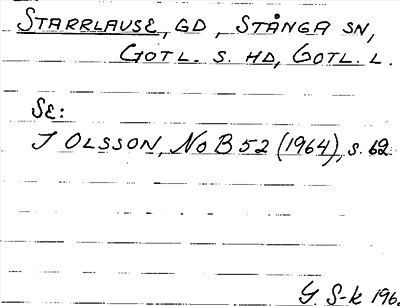 STARRLAUSE, GD, STÅNGA SN,
GOTL. S. HD, GOTL. L.
SE:
I OLSSON, NoB 52 (1964), s. 62
Y. S-k 196